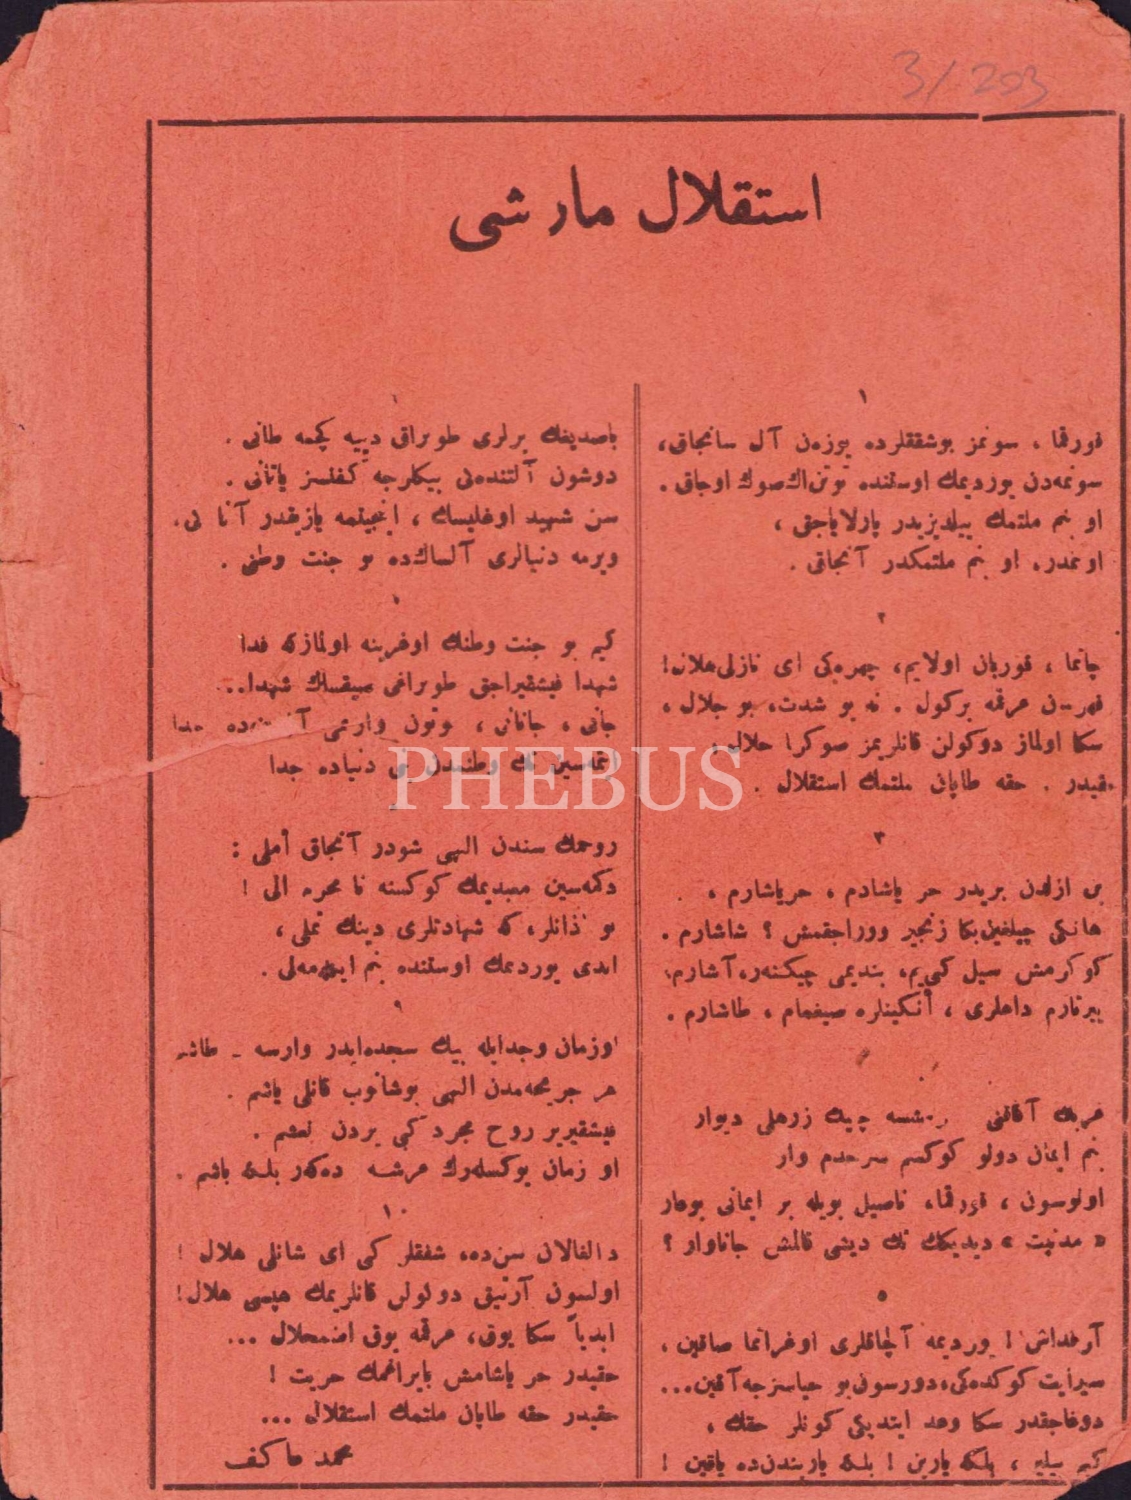 3/203
استقلال مارشی
١
قورقما ، سونمز بوشفقلرده یوزەن آل سانجاق،
سونمەدن یوردیمك اوستنده توتن اك صوك اوجاق .
او بنم ملتمك ییلدیزیدر پارلایاجق ،
اونمدر، او بنم ملتمكدر آنجاق .
٢
چاتما ، قوربان اولایم، چهرەکی ای نازلی هلال!
قهرمان عرقمه برکول . نه بو شدت، بو جلال ،
سكا اولماز دوكولن قانلریمز صوكرا حلال،
حقیدر . حقه طاپان ملتمك استقلال .
٣
بن ازلدن بریدر حر یاشادم ، حریاشارم ،
هانکی چیلغین بكا زنجیر ووراجقمش ؟ شاشارم .
كوكرمش سیل کبی یم، بندیمی چیكنەر، آشارم؛
ییرتارم داغلری ، أنكینلره صیغمام ، طاشارم .
غربك آفاقنی صارمشسه چیلك زرهلی دیوار
بنم ایمان دولو كوكسم سرحدم وار
اولوسون ، قورقما، ناصیل بویله بر ایمانی بوغار
« مدنیت » دیدیكك تك دیشی قالمش جاناوار ؟
٥
آرقداش ! یوردیمه آلچاقلری اوغراتما صاقین ،
سیرایت كوكدەکی، دورسون بو حیاسزجه آقین...
دوغاجقدر سكا وعد ایتدیکی كونلر حقك ،
کیم بیلیر ، بلکه یارین ! بلکه یاریندن ده یاقین !
باصدیغك یرلری طوپراق دییه کچمه طانی .
دوشون آلتندەکی بیكلرجه كفنسز یاتانی .
سن شهید اوغلیسك ، اینجیتمه یازیقدر آتا کی،
ویرمه دنیالری آلساك ده بو جنت وطنی .
کیم بو جنت وطنك اوغرینه اولمازکه فدا
شهدا فیشقیراجق طوپراغی صیقساك شهدا..
جانی ، جانانی ، بوتون واریمی آلسین ده خدا
ایتمەسین تك وطنمدن بنی دنیاده جدا
PHEBUS
روحمك سندن الهی شودر آنجاق أملی :
دكمەسین معبدیمك كوكسنه نا محرم الی !
بو اذانلر، که شهادتلری دینك تملی ،
ابدی یوردیمك اوستنده بنم ایكلەمەلی .
٩
اوزمان وجدایله بیك سجدەایدر وارسه ــ طاشم
هر جریحەمدن الهی بوشانوب قانلی یاشم .
فیشقیریر روح مجرد کبی یردن نعشم .
او زمان یوكسلەرك عرشه دەكەر بلکه باشم .
١٠
دالغالان سن ده، شفقلر کبی ای شانلی هلال !
اولسون آرتیق دوكولن قانلریمك هپسی هلال!
ابدیاً سكا یوق، عرقمه یوق اضمحلال ...
حقیدر حر یاشامش بایراغمك حریت !
حقیدر حقه طاپان ملتمك استقلال ...
محمد عاکف